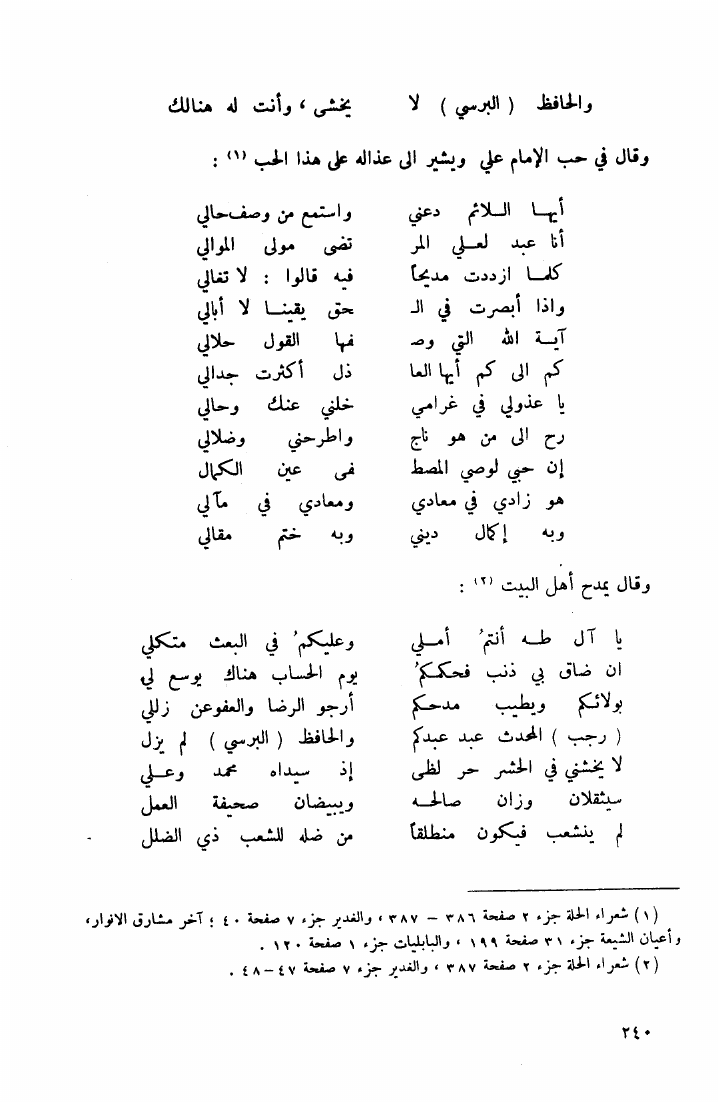 والحافظ ( البرسي ) لا يخشى ، وأنت له هنالك
وقال في حب الإمام علي ويشير الى عذاله على هذا الحب (١) :
أيهـا الـلائم دعني واستمع من وصف حالي
أنا عبد لعـلي المر تضى مولى الموالي
كلمـا ازددت مديحاً فيه قالوا : لا تغالي
واذا أبصرت في الـ حق يقينـا لا أبالي
آيـة الله التي وصـ فها القول حلالي
كم الى كم أيها العا ذل أكثرت جدالي
يا عذولي في غرامي خلني عنك وحالي
رح الى من هو ناج واطرحني وضلالي
إن حبي لوصي المصط فى عين الكمال
هو زادي في معادي ومعادي في مآلي
وبه إكمال ديني وبه ختم مقالي
وقال يمدح أهل البيت (٢) :
يا آل طـه أنتمُ أمـلي وعليكمُ في البعث متكلي
ان ضاق بي ذنب فحكمكمُ يوم الحساب هناك يوسع لي
بولائكم ويطيب مدحكم أرجو الرضا والعفوعن زللي
( رجب ) المحدث عبد عبدكم والحافظ ( البرسي ) لم يزل
لا يخشني في الحشر حر لظى إذ سيداه محمد وعـلي
سيثقلان وزان صالحـه ويبيضان صحيفة العمل
لم ينشعب فيكون منطلقاً من ضله للشعب ذي الضلل
(١) شعراء الحلة جزء ٢ صفحة ٣٨٦ – ٣٨٧ ، والغدير جزء ٧ صفحة ٤٠ ؛ آخر مشارق الانوار،
وأعيان الشيعة جزء ٣١ صفحة ١٩٩ ، والبابليات جزء ١ صفحة ١٢٠ .
(٢) شعراء الحلة جزء ٢ صفحة ٣٨٧ ، والغدير جزء ٧ صفحة ٤٧–٤٨ .
٢٤٠